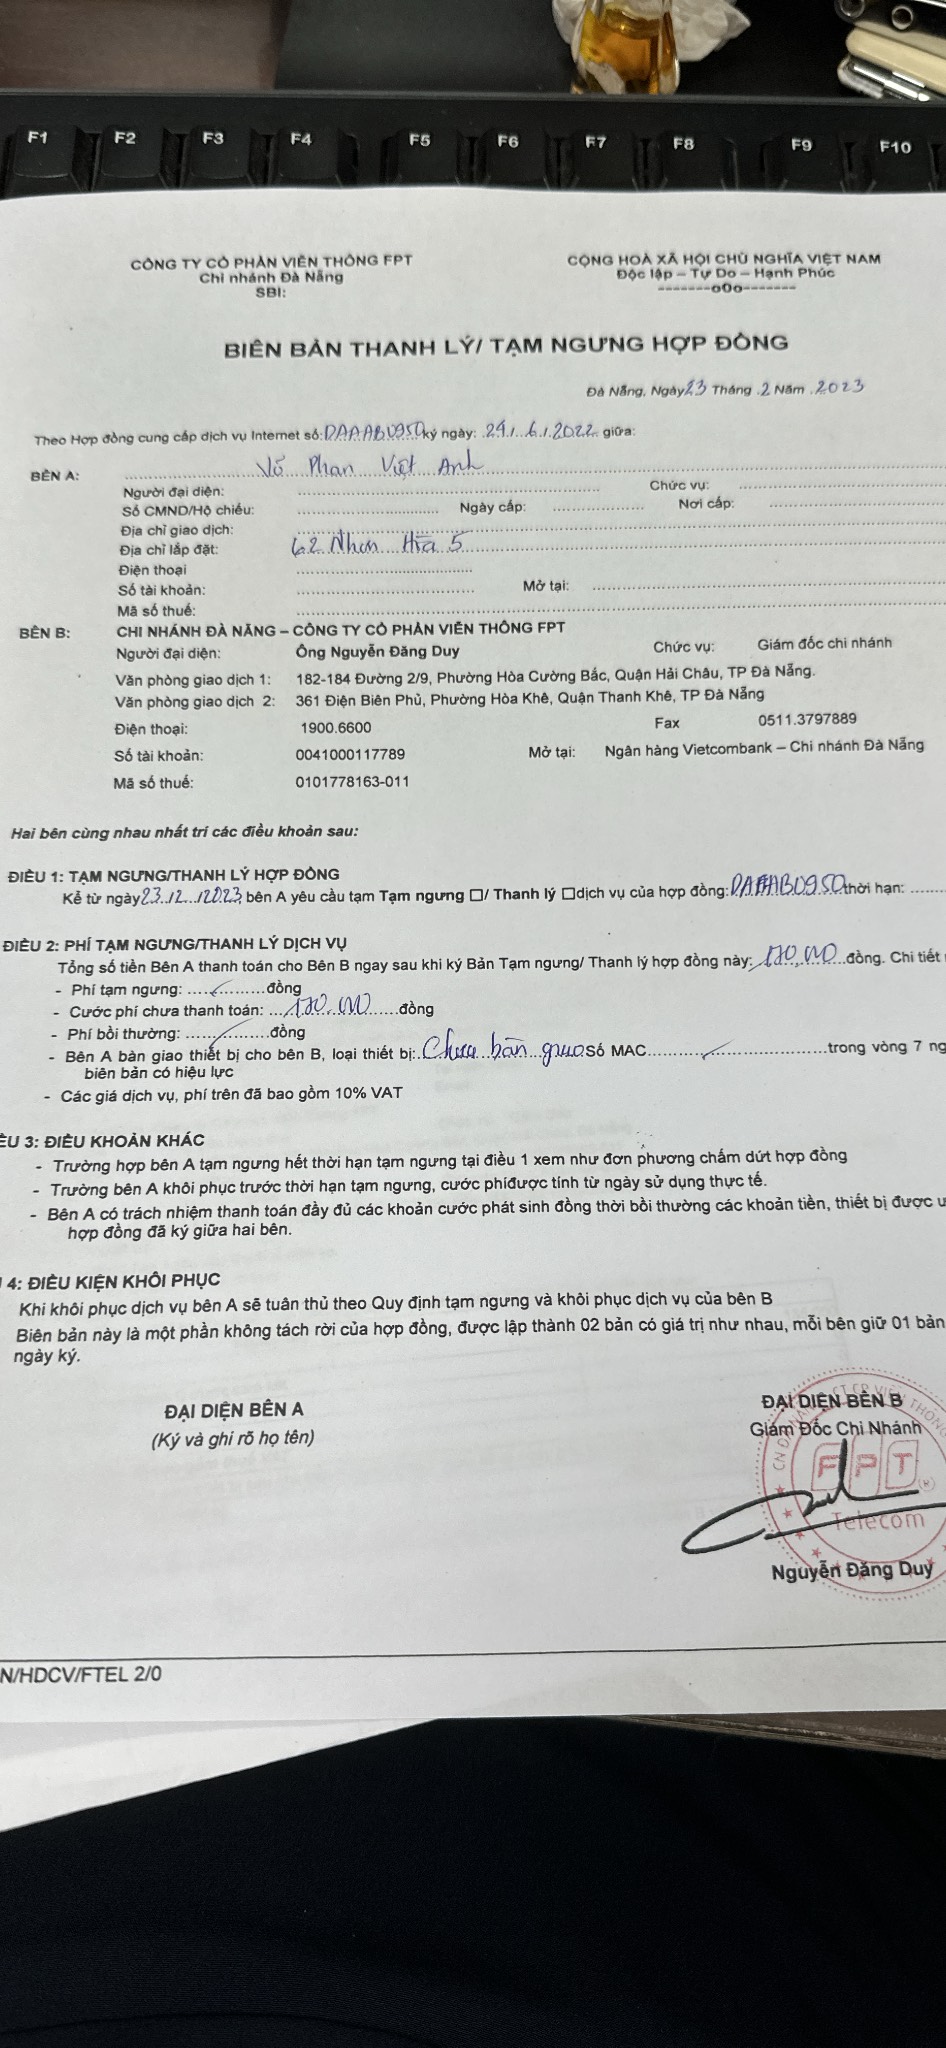 F1 F2 F3 F4 F5 F6 F7 F8 F9 F10
CÔNG TY CỔ PHẦN VIỄN THÔNG FPT
Chi nhánh Đà Nẵng
SBI:
CỘNG HOÀ XÃ HỘI CHỦ NGHĨA VIỆT NAM
Độc lập – Tự Do – Hạnh Phúc
-------o0o-------
BIÊN BẢN THANH LÝ/ TẠM NGƯNG HỢP ĐỒNG
Đà Nẵng, Ngày 23 Tháng .2 Năm .2023
Theo Hợp đồng cung cấp dịch vụ Internet số: DAAAB0950 ký ngày: 29/.6./.2022 giữa:
BÊN A: Võ Phan Việt Anh
Người đại diện: Chức vụ:
Số CMND/Hộ chiếu: Ngày cấp: Nơi cấp:
Địa chỉ giao dịch:
Địa chỉ lắp đặt: 62 Nhơn Hòa 5
Điện thoại
Số tài khoản: Mở tại:
Mã số thuế:
BÊN B: CHI NHÁNH ĐÀ NẴNG – CÔNG TY CỔ PHẦN VIỄN THÔNG FPT
Người đại diện: Ông Nguyễn Đăng Duy Chức vụ: Giám đốc chi nhánh
Văn phòng giao dịch 1: 182-184 Đường 2/9, Phường Hòa Cường Bắc, Quận Hải Châu, TP Đà Nẵng.
Văn phòng giao dịch 2: 361 Điện Biên Phủ, Phường Hòa Khê, Quận Thanh Khê, TP Đà Nẵng
Điện thoại: 1900.6600 Fax 0511.3797889
Số tài khoản: 0041000117789 Mở tại: Ngân hàng Vietcombank – Chi nhánh Đà Nẵng
Mã số thuế: 0101778163-011
Hai bên cùng nhau nhất trí các điều khoản sau:
ĐIỀU 1: TẠM NGƯNG/THANH LÝ HỢP ĐỒNG
Kể từ ngày 23./2.../2023, bên A yêu cầu tạm Tạm ngưng ☐/ Thanh lý ☐dịch vụ của hợp đồng: DAAAB0950 thời hạn: ......
ĐIỀU 2: PHÍ TẠM NGƯNG/THANH LÝ DỊCH VỤ
Tổng số tiền Bên A thanh toán cho Bên B ngay sau khi ký Bản Tạm ngưng/ Thanh lý hợp đồng này: 170.000 đồng. Chi tiết
- Phí tạm ngưng: ...............đồng
- Cước phí chưa thanh toán: ...170.000......đồng
- Phí bồi thường: ...............đồng
- Bên A bàn giao thiết bị cho bên B, loại thiết bị: Chưa bàn giao Số MAC..............................trong vòng 7
biên bản có hiệu lực
- Các giá dịch vụ, phí trên đã bao gồm 10% VAT
ỀU 3: ĐIỀU KHOẢN KHÁC
- Trường hợp bên A tạm ngưng hết thời hạn tạm ngưng tại điều 1 xem như đơn phương chấm dứt hợp đồng
- Trường bên A khôi phục trước thời hạn tạm ngưng, cước phíđược tính từ ngày sử dụng thực tế.
- Bên A có trách nhiệm thanh toán đầy đủ các khoản cước phát sinh đồng thời bồi thường các khoản tiền, thiết bị được
hợp đồng đã ký giữa hai bên.
4: ĐIỀU KIỆN KHÔI PHỤC
Khi khôi phục dịch vụ bên A sẽ tuân thủ theo Quy định tạm ngưng và khôi phục dịch vụ của bên B
Biên bản này là một phần không tách rời của hợp đồng, được lập thành 02 bản có giá trị như nhau, mỗi bên giữ 01 bản
ngày ký.
ĐẠI DIỆN BÊN A
(Ký và ghi rõ họ tên)
ĐẠI DIỆN BÊN B
Giám Đốc Chi Nhánh
FPT
Telecom
Nguyễn Đăng Duy
N/HDCV/FTEL 2/0